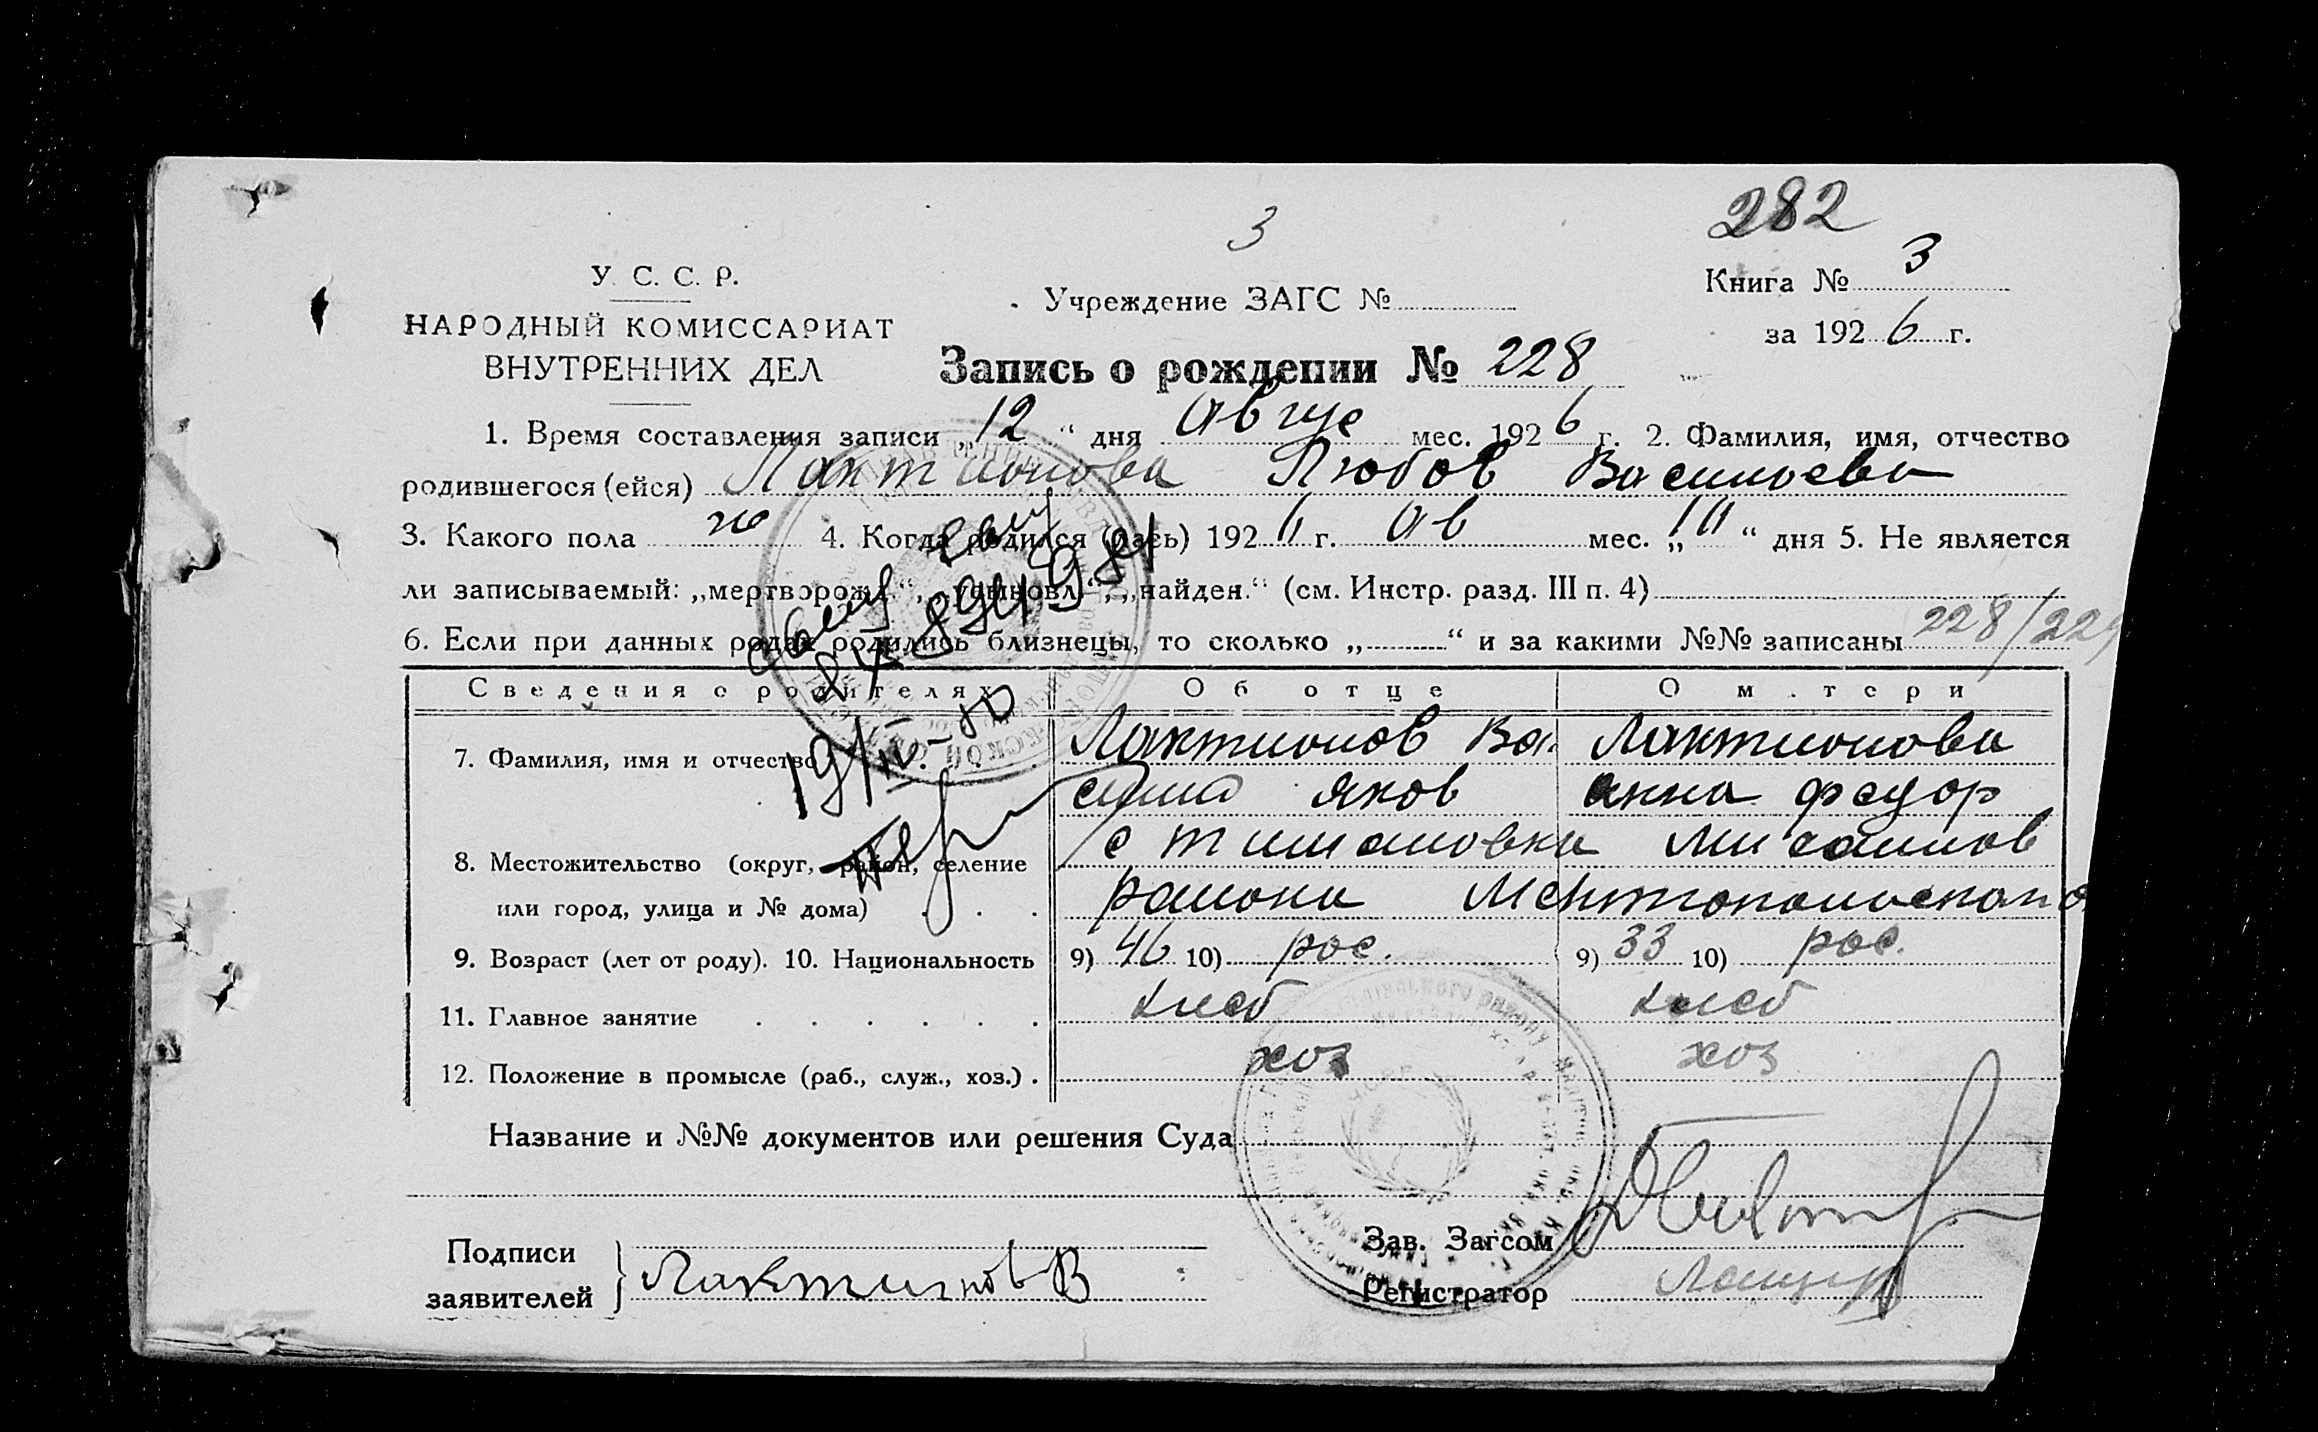 282
3
У. С. С. Р.
НАРОДНЫЙ КОМИССАРИАТ
ВНУТРЕННИХ ДЕЛ
Учреждение ЗАГС №
Книга № 3
за 192 6 г.
Запись о рождении № 228
1. Время составления записи „ 12 “ дня Авгус мес. 192 6 г. 2. Фамилия, имя, отчество
родившегося (ейся) Лактионова Любов Васильева
3. Какого пола ж 4. Когда родился (лась) 192 6 г. Ав мес. „ “ дня 5. Не является
ли записываемый: „мертворожд.“, „усыновл.“, „найден.“ (см. Инстр. разд. III п. 4)
6. Если при данных родах родились близнецы, то сколько „ “ и за какими №№ записаны 228/229
Сведения о родителях Об отце О матери
7. Фамилия, имя и отчество Лактионов Ва Лактионова
силий Яков анна федор
8. Местожительство (округ, район, селение с тимашовка Михайлов
или город, улица и № дома) района Мелитопольского
9. Возраст (лет от роду). 10. Национальность 9) 46 10) рос. 9) 33 10) рос.
11. Главное занятие хлеб хлеб
12. Положение в промысле (раб., служ., хоз.) хоз хоз
Название и №№ документов или решения Суда
Подписи заявителей Лактионов В
Зав. Загсом
Регистратор